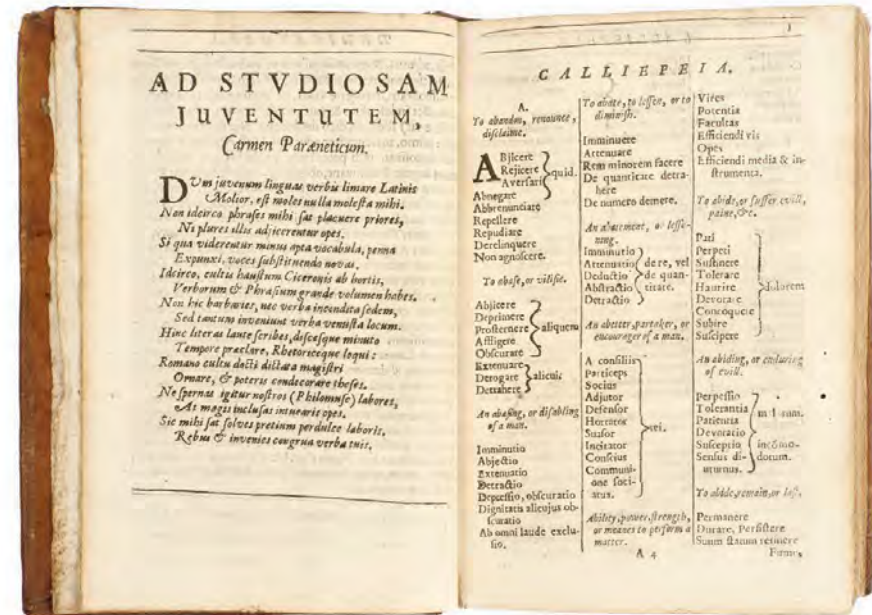 AD STVDIOSAM
JUVENTUTEM,
Carmen Paræneticum.
DVm juvenum linguas verbis limare Latinis
Molior, est moles nulla molesta mihi.
Non idcirco phrases mihi sat placuere priores,
Ni plures illis adjicerentur opes.
Si qua viderentur minus apta vocabula, penna
Expunxi, voces substituendo novas.
Idcirco, cultis haustum Ciceronis ab hortis,
Verborum & Phrasium grande volumen habes.
Non hic barbaries, nec verba incondita sedem,
Sed tantum inveniunt verba venusta locum.
Hinc literas laute scribes, discesque minuto
Tempore præclare, Rhetoriceque loqui:
Romano cultu docti dictata magistri
Ornare, & poteris condecorare theses.
Ne spernas igitur nostros (Philomuse) labores,
At magis inclusas intuearis opes.
Sic mihi sat solves pretium perdulce laboris,
Rebus & invenies congrua verba tuis.
1
CALLIEPEIA.
A.
To abandon, renounce,
disclaime.
ABjicere
Rejicere
Aversari
quid.
Abnegare
Abrenunciare
Repellere
Repudiare
Derelinquere
Non agnoscere.
To abase, or vilifie.
Abjicere
Deprimere
Prosternere
Affligere
Obscurare
aliquem
Extenuare
Derogare
Detrahere
alicui
An abasing, or disabling
of a man.
Imminutio
Abjectio
Extenuatio
Detractio
Depressio, obscuratio
Dignitatis alicujus ob-
scuratio
Ab omni laude exclu-
sio.
To abate, to lessen, or to
diminish.
Imminuere
Attenuare
Rem minorem facere
De quantitate detra-
here
De numero demere.
An abatement, or lesse-
ning.
Imminutio
Attenuatio
Deductio
Abstractio
Detractio
de re, vel
de quan-
titate.
An abetter, partaker, or
encourager of a man.
A consiliis
Particeps
Socius
Adjutor
Defensor
Hortator
Suasor
Incitator
Conscius
Communi-
one soci-
atus.
rei.
Ability, power, strength,
or meanes to perform a
matter.
A 4
Vires
Potentia
Facultas
Efficiendi vis
Opes
Efficiendi media & in-
strumenta.
To abide, or suffer evill,
paine, &c.
Pati
Perpeti
Sustinere
Tolerare
Haurire
Devorare
Concoquere
Subire
Suscipere
dolorem
An abiding, or enduring
of evill.
Perpessio
Tolerantia
Patientia
Devoratio
Susceptio
Sensus di-
uturnus.
incõmo-
dorum.
To abide, remain, or last.
Permanere
Durare, Persistere
Suum statum retinere
Firme,